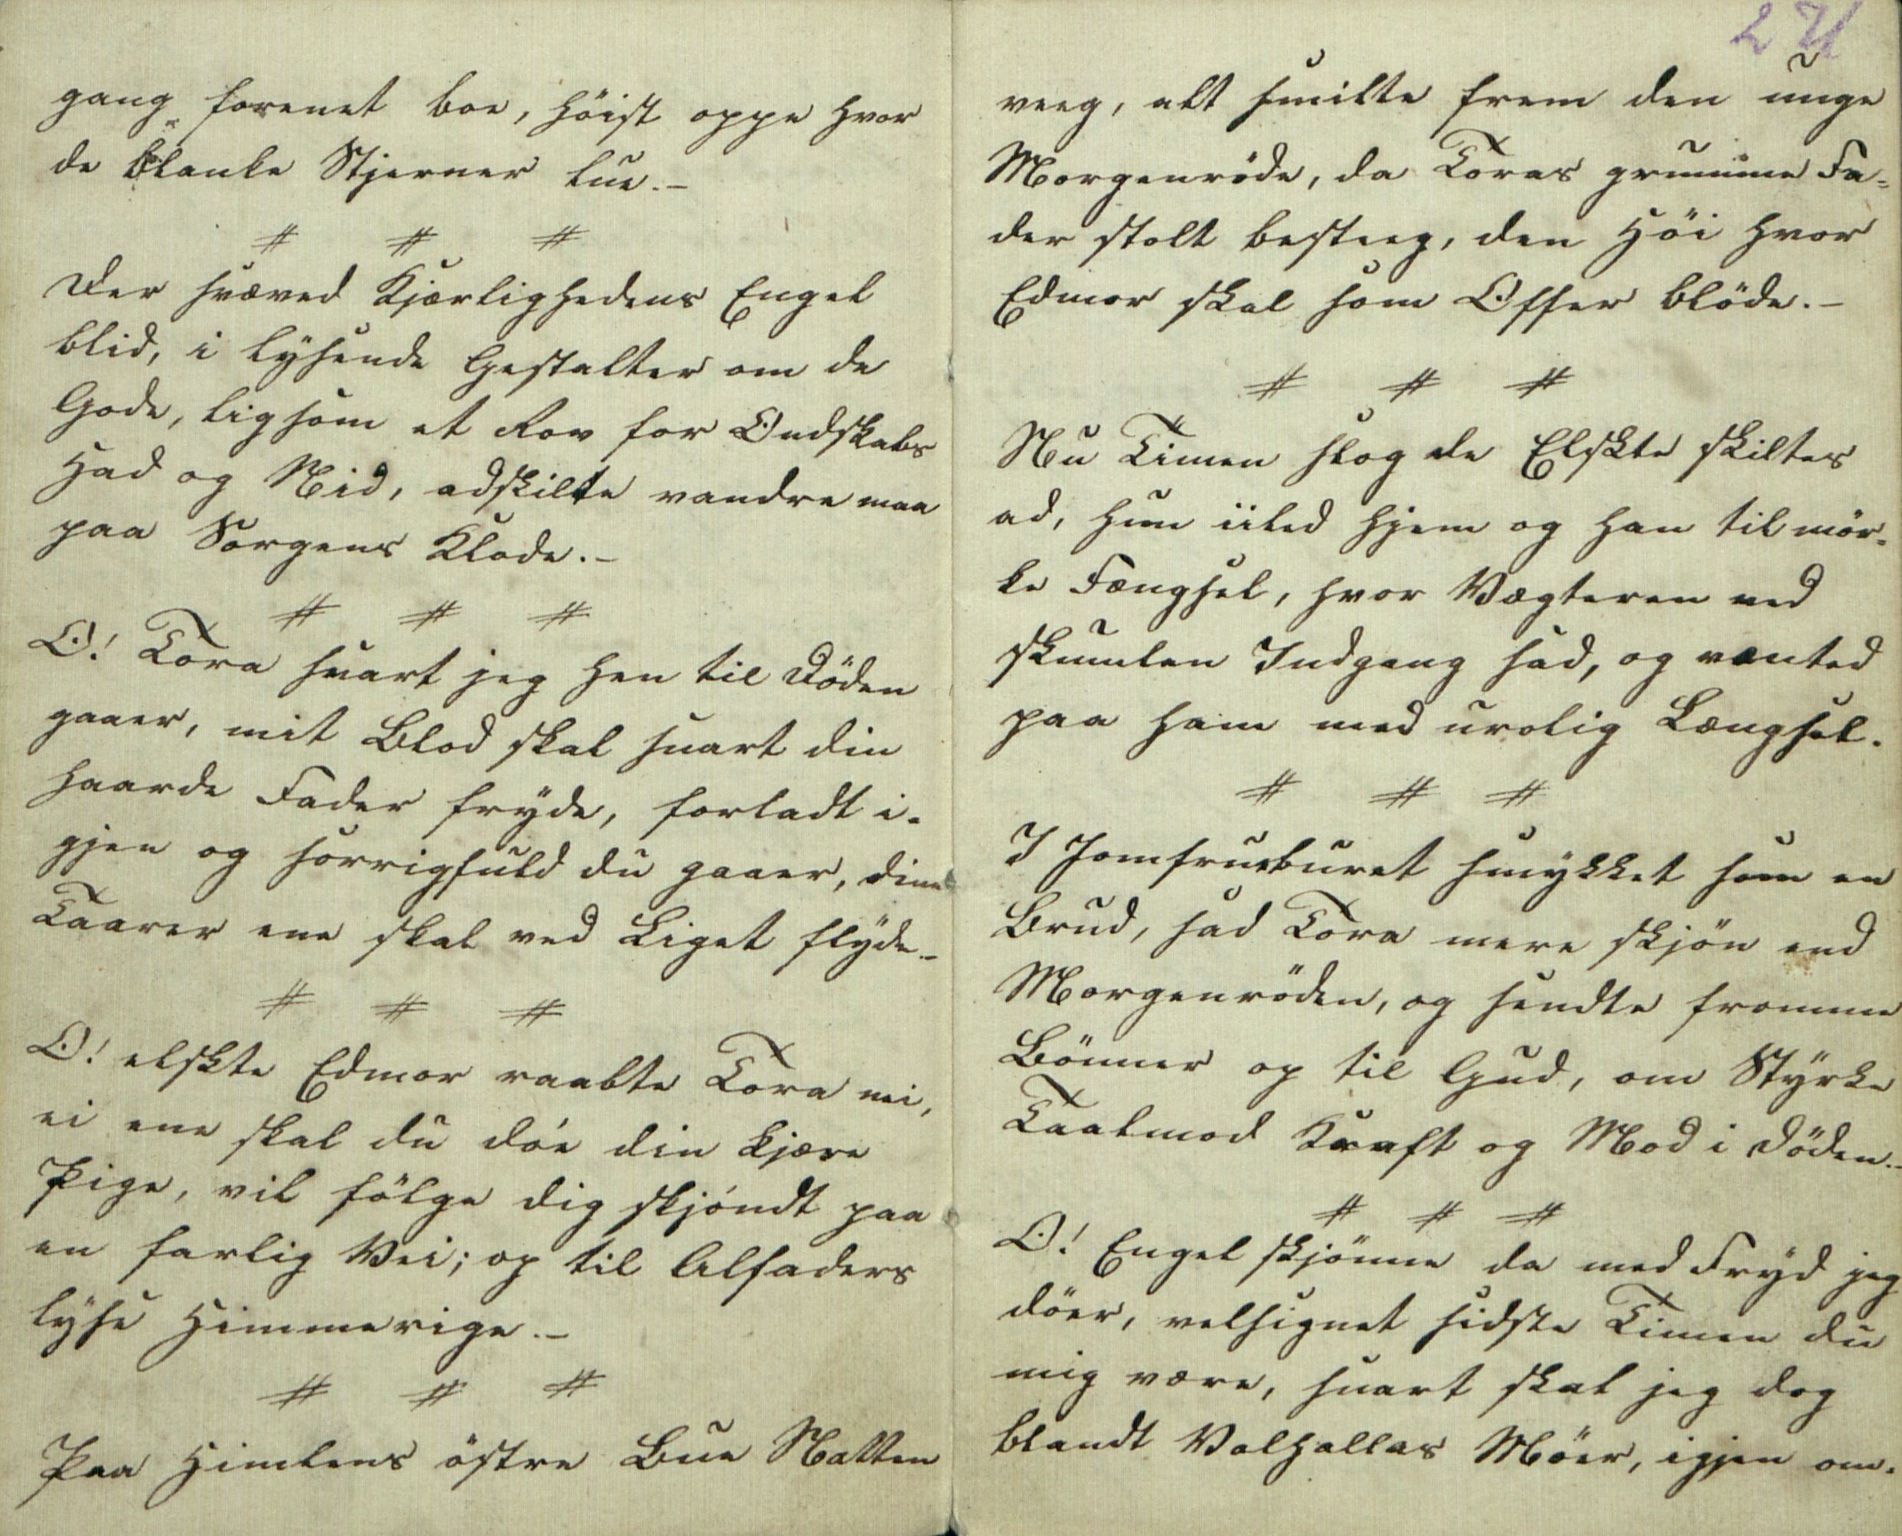 gang forenet boe, höist oppe hvor
de blanke Stjerner lue.-
# # #
Der svæved Kjærlighedens Engel
blid, i lysende Gestalter om de
Gode, ligsom et Rov for Ondskabs
Had og Nid, adskilte vandre maa
paa Sorgens Klode.-
# # #
O! Tora snart jeg hen til Döden
gaaer, mit Blod skal snart din
haarde Fader fryde, forladt i-
gjen og sorrigfuld du gaaer, dine
Taarer ene skal ved Liget flyde.-
# # #
O! elskte Edmor raabte Tora nei,
ei ene skal du döe din kjære
Pige, vil fölge dig skjöndt paa
en farlig Vei; op til Alfaders
lyse Himmerige.-
# # #
Paa Himlens östre Bue Natten
24
veeg, alt smilte frem den unge
Morgenröde, da Toras grumme Fa-
der stolt besteeg, den Höi hvor
Edmor skal som Offer blöde.-
# # #
Nu Timen slog de Elskte skiltes
ad, hun iiled hjem og han til mör-
ke Fængsel, hvor Vægteren ved
skumlen Indgang sad, og vented
paa ham med urolig Længsel.
# # #
I Jomfruburet smykket som en
Brud, sad Tora mere skjön end
Morgenröden, og sendte fromme
Bönner op til Gud, om Styrke
Taalmod Kraft og Mod i Döden.-
# # #
O! Engel skjönne da med Fryd jeg
döer, velsignet sidste Timen du
mig være, snart skal jeg dog
blandt Valhallas Möer, igjen om-